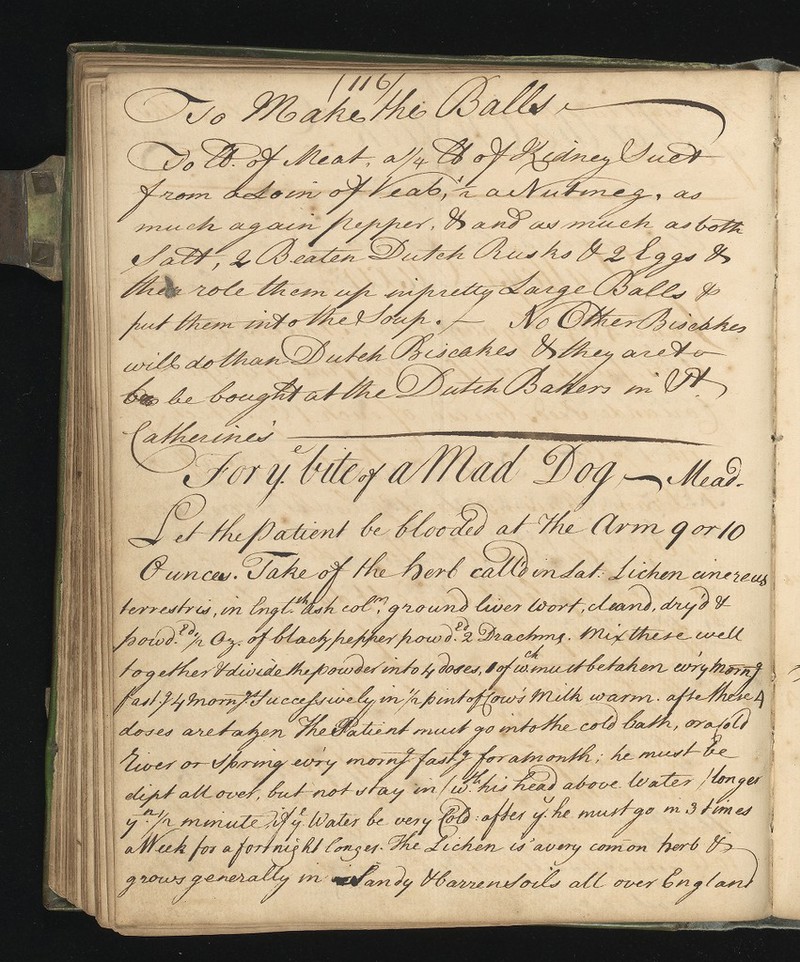 (116)
To Make the Balls
To lb. of Meat, a 1/4 lb of Kidney Suet
from a Loin of Veal, 1/2 a Nutmeg, as
much again pepper, & and as much as both
Salt, 2 Beaten Dutch Rusks & 2 Eggs &
then role them up in pretty Large Balls &
put them into the Soup. — No Other Biscakes
will do than Dutch Biscakes & they are to
be bought at the Dutch Bakers in St
Catherine's
For ye. bite of a Mad Dog — Mead.
Let the patient be blooded at the Arm 9 or 10
Ounces. Take of the herb call'd in Lat: Lichen cinereus
terrestris, in Englsh. ash colrd, ground liver wort, cleand, dry'd &
powd.ed 1/2 Oz. of black pepper powd.ed 2 Drachms. Mix these well
together & divide the powder into 4 doses, 1 of wch. must be taken ev'ry morng
fastg 4 morngs Successively in 1/2 pint of Cow's Milk warm. after these 4
doses are taken The Patient must go into the cold bath, or a Cold
River or Spring ev'ry morng fastg for a month; he must be
dipt all over, but not stay in (wth. his head above Water) longer
yn. 1/2 minute if ye. Water be very Cold: after yt. he must go in 3 times
a Week for a fortnight longer. The Lichen is a very comon herb &
grows generally in Sandy & barren Soils all over England